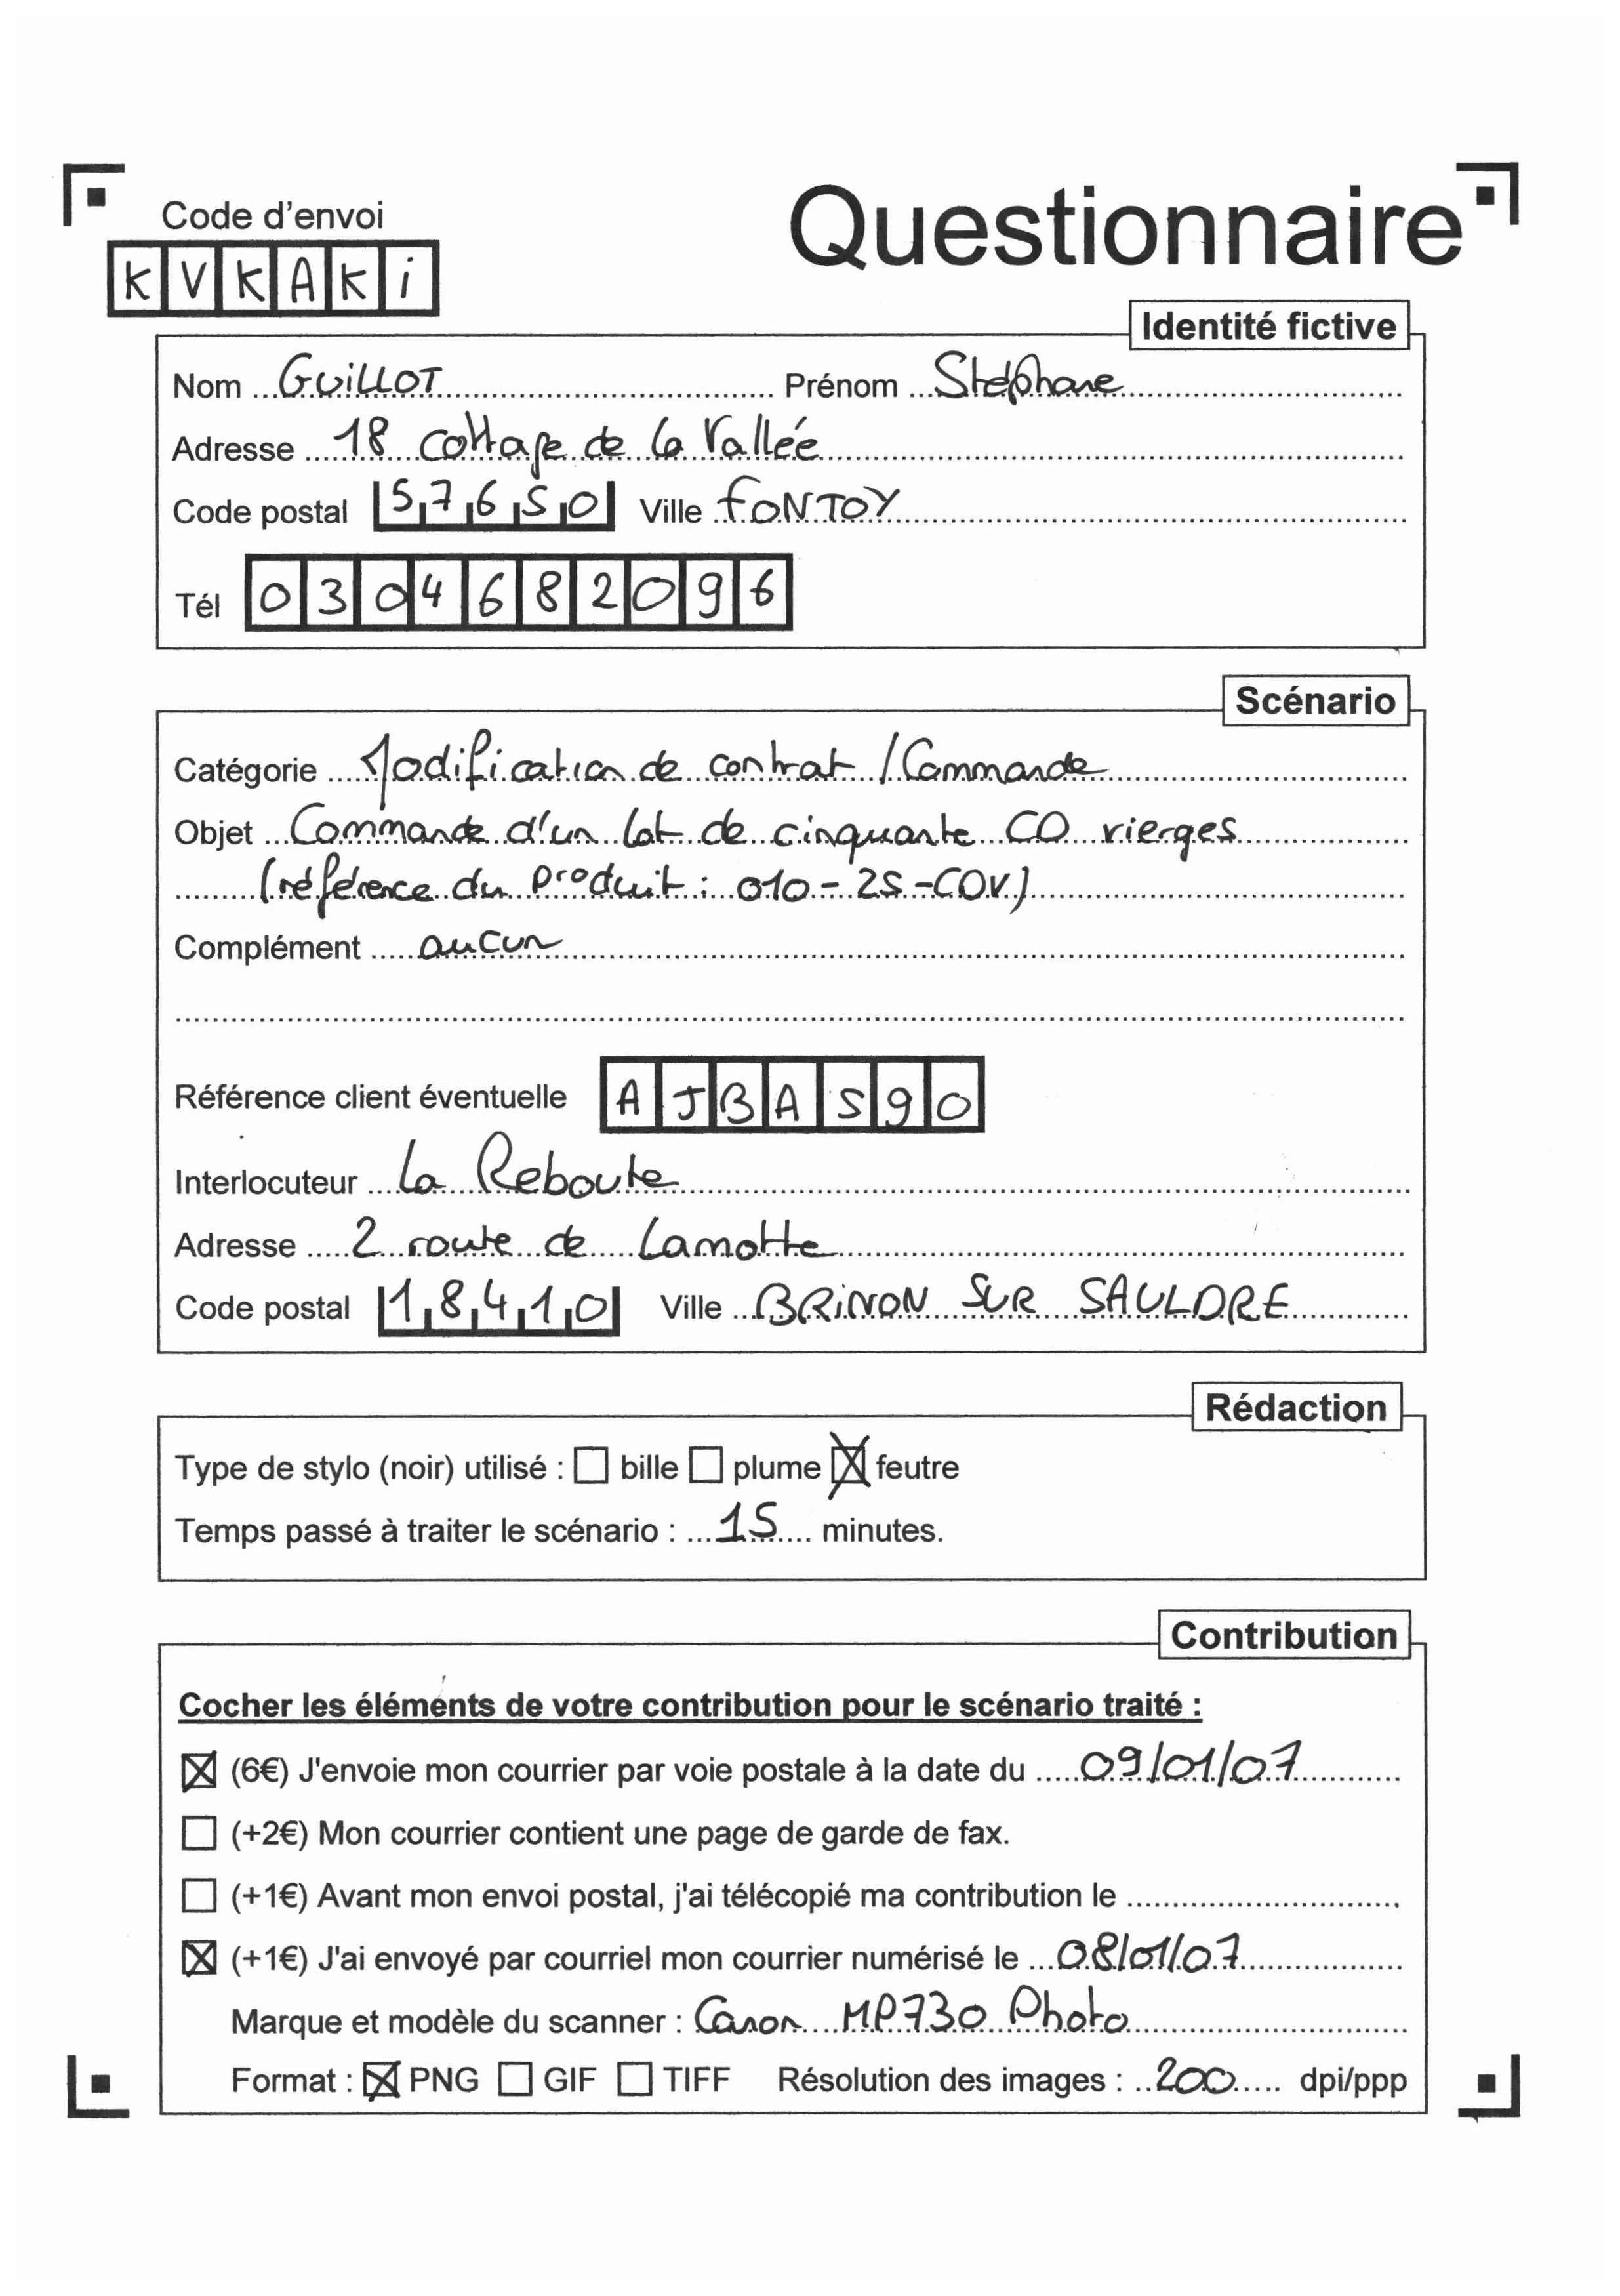 Code d'envoi
Questionnaire
KVKAKi
Identité fictive
Nom GUiLLOT Prénom Stéphane
Adresse 18 cottage de la Vallée
Code postal 57650 Ville fONTOY
Tél 0304682096
Scénario
Catégorie Modification de contrat / Commande
Objet Commande d'un lot de cinquante CD vierges
(référence du produit : 010-25-CDV)
Complément aucun
Référence client éventuelle AJBA590
Interlocuteur La Reboute
Adresse 2 route de Lamotte
Code postal 18410 Ville BRiNON SUR SAULDRE
Rédaction
Type de stylo (noir) utilisé : ☐ bille ☐ plume ☒ feutre
Temps passé à traiter le scénario : 15 minutes.
Contribution
Cocher les éléments de votre contribution pour le scénario traité :
☒ (6€) J'envoie mon courrier par voie postale à la date du 09/01/07
☐ (+2€) Mon courrier contient une page de garde de fax.
☐ (+1€) Avant mon envoi postal, j'ai télécopié ma contribution le
☒ (+1€) J'ai envoyé par courriel mon courrier numérisé le 08/01/07
Marque et modèle du scanner : Canon MP730 Photo
Format : ☒ PNG ☐ GIF ☐ TIFF Résolution des images : 200 dpi/ppp